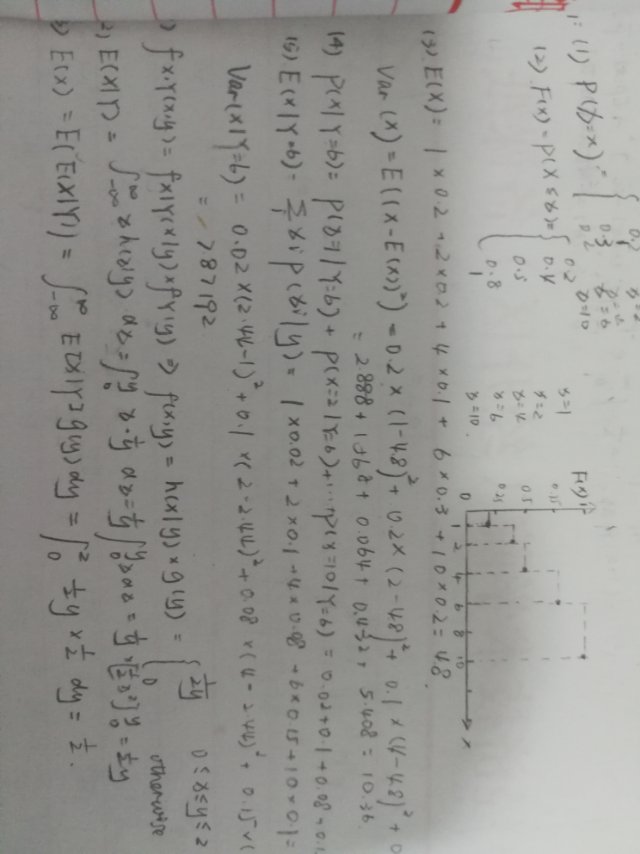 1: (1) P(X=x) = { 0.2 x=2
0.1 x=4
0.3 x=6
0.2 x=10
(2) F(x) = P(X≤x) = { 0.2 x=1
0.4 x=2
0.5 x=4
0.8 x=6
1 x=10
F(x)
0.5
0 1 2 4 6 8 10 x
(3) E(X) = 1×0.2 + 2×0.2 + 4×0.1 + 6×0.3 + 10×0.2 = 4.8
Var(X) = E((X-E(X))²) = 0.2×(1-4.8)² + 0.2×(2-4.8)² + 0.1×(4-4.8)² + 0
= 2.888 + 1.568 + 0.064 + 0.432 + 5.408 = 10.36
(4) P(X|Y=6) = P(X=1|Y=6) + P(X=2|Y=6) + ... + P(X=10|Y=6) = 0.02+0.1+0.08+0.1
(5) E(X|Y=6) = Σ xi P(xi|y) = 1×0.02 + 2×0.1 + 4×0.08 + 6×0.15 + 10×0.1 =
Var(X|Y=6) = 0.02×(2.44-1)² + 0.1×(2-2.44)² + 0.08×(4-2.44)² + 0.15×(
= 787192
) fXY(x,y) = fX|Y(x|y) × fY(y) ⇒ f(x,y) = h(x|y) × g(y) = { 1/2y 0≤x≤y≤2
0 otherwise
2) E(X|Y) = ∫_{-∞}^{∞} x h(x|y) dx = ∫_0^y x · 1/y dx = 1/y ∫_0^y x dx = 1/y × [1/2 x²]_0^y = 1/2 y
3) E(X) = E(E(X|Y)) = ∫_{-∞}^{∞} E[X|Y] g(y) dy = ∫_0^2 1/2 y × 1/2 dy = 1/2.